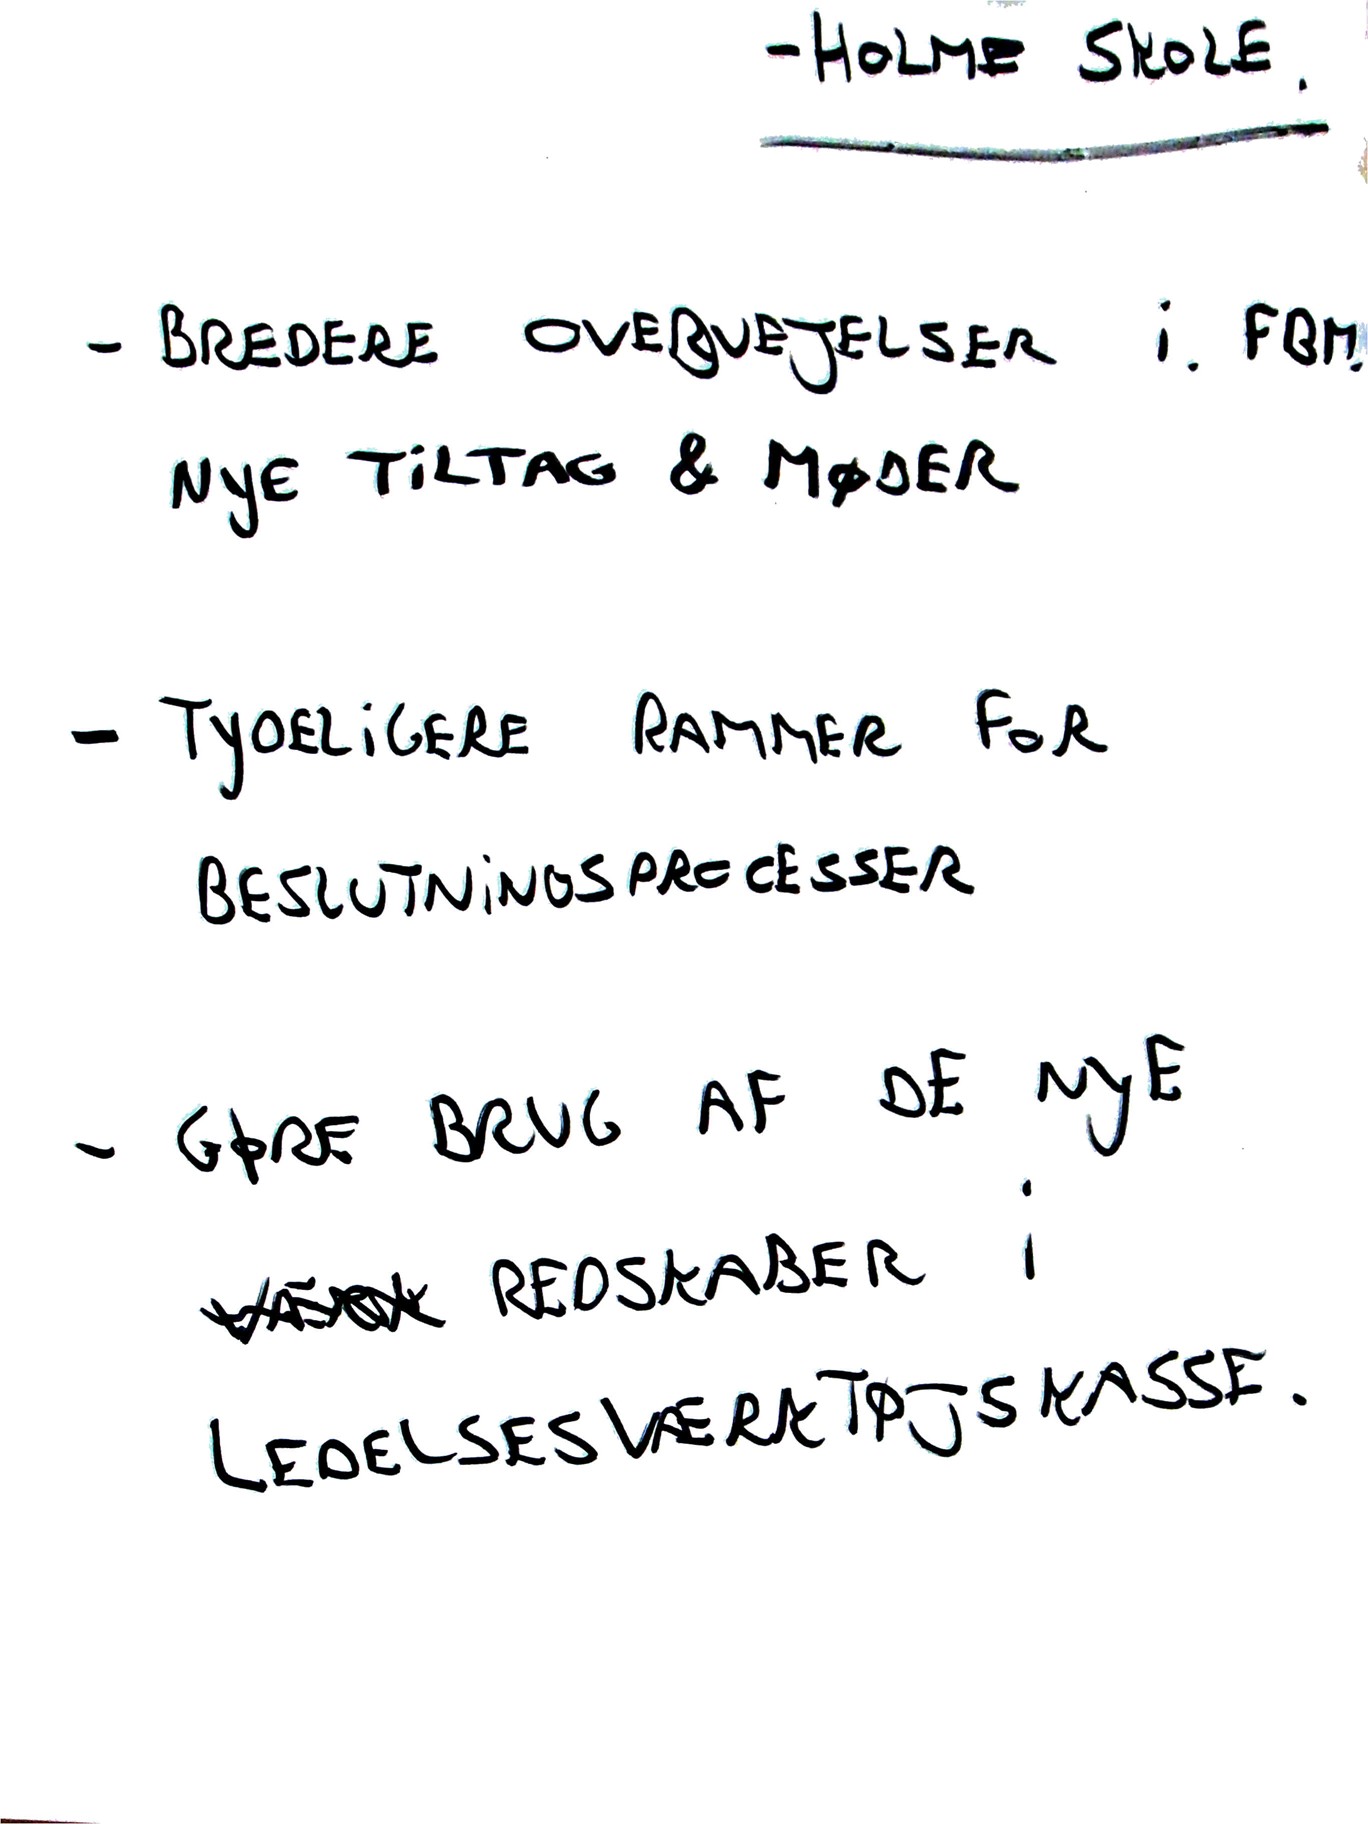 -HOLME SKOLE.
- BREDERE OVERVEJELSER i. FBM.
NYE TiLTAG & MØDER
- TYDELiGERE RAMMER FOR
BESLUTNiNGSPROCESSER
- GØRE BRUG AF DE NYE
REDSKABER i
LEDELSESVÆRKTØJSKASSE.